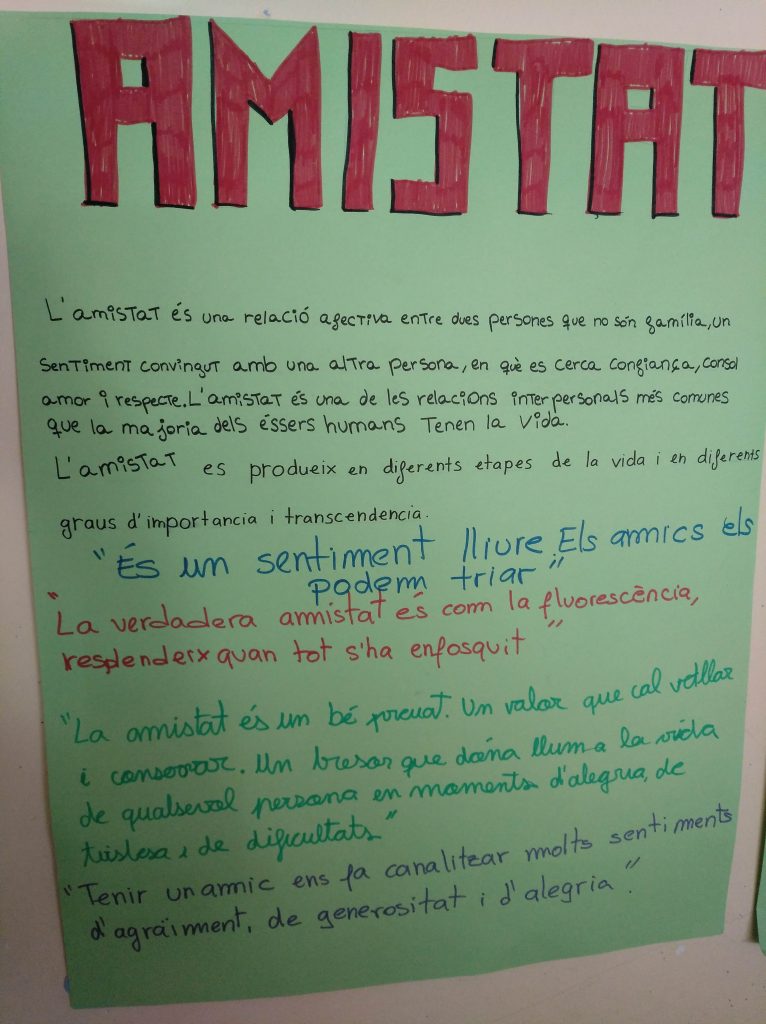 AMISTAT
L'amistat és una relació afectiva entre dues persones que no són família, un
sentiment convingut amb una altra persona, en què es cerca confiança, consol
amor i respecte. L'amistat és una de les relacions interpersonals més comunes
que la majoria dels éssers humans tenen la vida.
L'amistat es produeix en diferents etapes de la vida i en diferents
graus d'importancia i transcendencia.
"És un sentiment lliure. Els amics els
podem triar"
"La verdadera amistat és com la fluorescència,
resplendeix quan tot s'ha enfosquit"
"La amistat és un bé preuat. Un valor que cal vetllar
i conservar. Un tresor que dóna llum a la vida
de qualsevol persona en moments d'alegria, de
tristesa i de dificultats"
"Tenir un amic ens fa canalitzar molts sentiments
d'agraïment, de generositat i d'alegria".